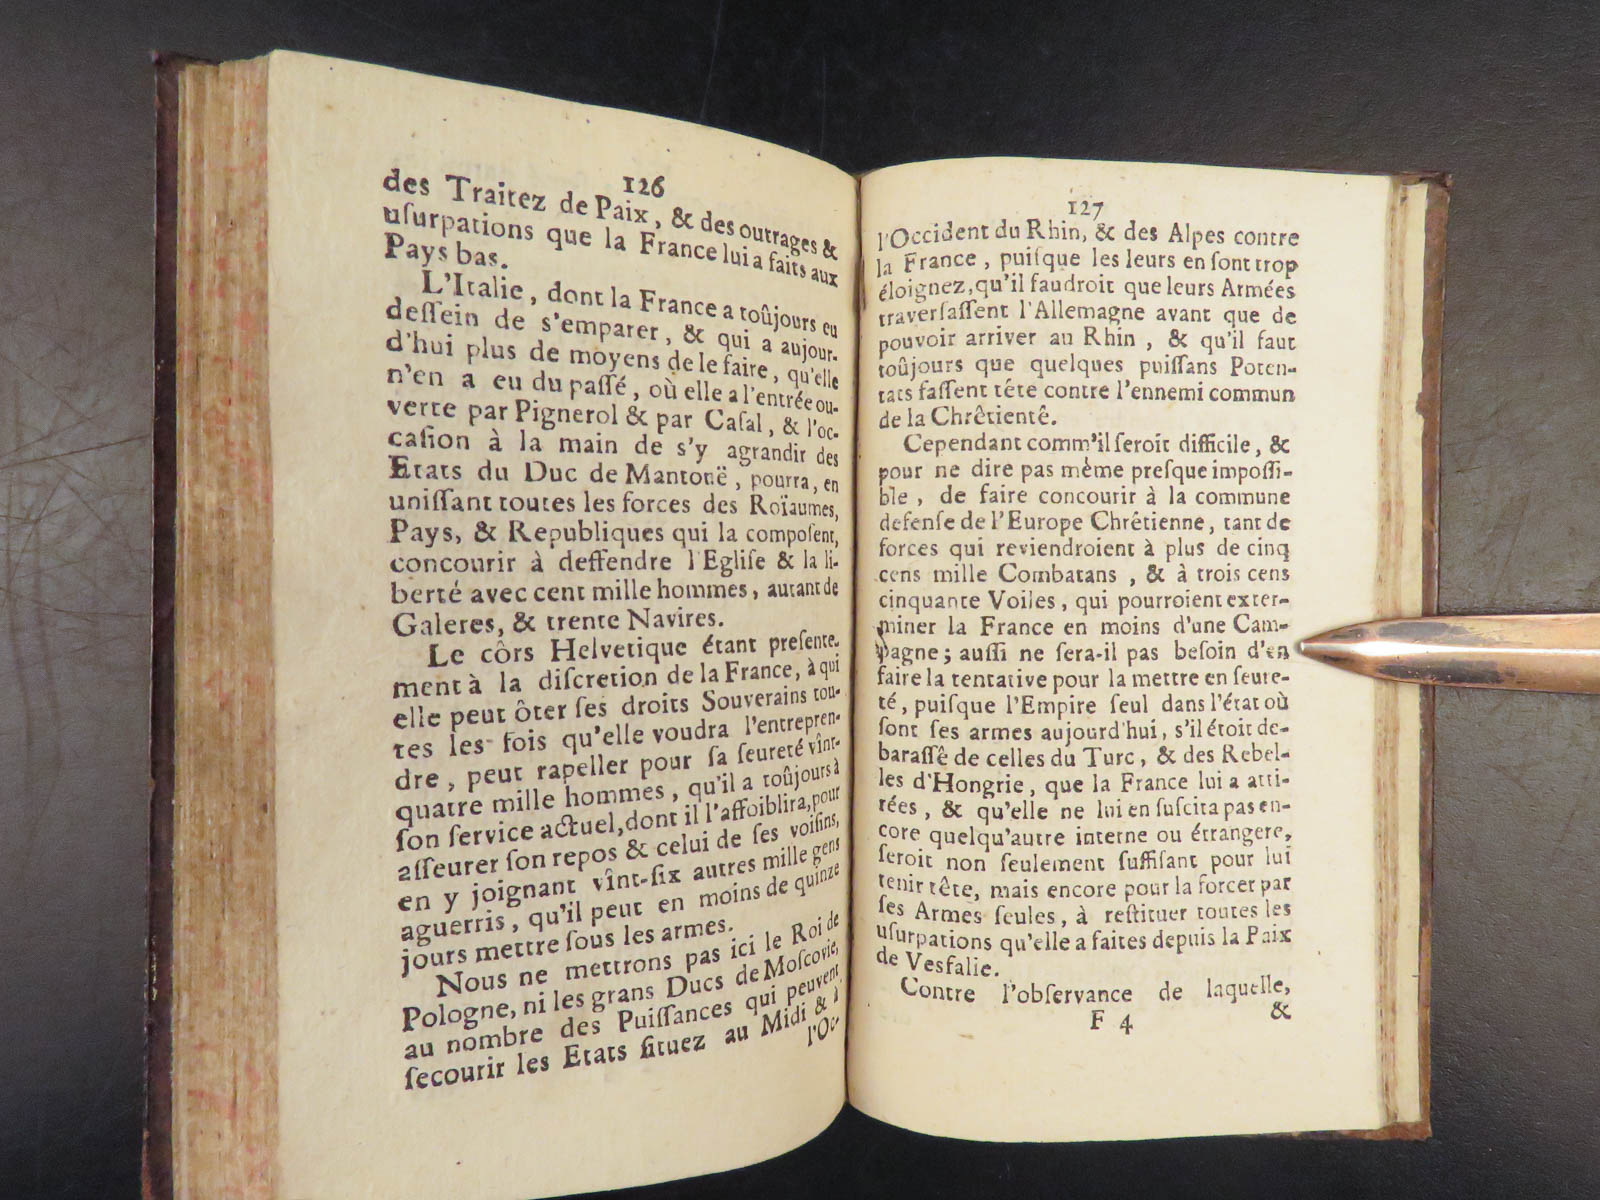 126
des Traitez de Paix, & des outrages &
uſurpations que la France lui a faits aux
Pays bas.
L'Italie, dont la France a toûjours eu
deſſein de s'emparer, & qui a aujour-
d'hui plus de moyens de le faire, qu'elle
n'en a eu du paſſé, où elle a l'entrée ou-
verte par Pignerol & par Caſal, & l'oc-
caſion à la main de s'y agrandir des
Etats du Duc de Mantouë, pourra, en
uniſſant toutes les forces des Roïaumes,
Pays, & Republiques qui la compoſent,
concourir à deffendre l'Egliſe & la li-
berté avec cent mille hommes, autant de
Galeres, & trente Navires.
Le côrs Helvetique étant preſente-
ment à la diſcretion de la France, à qui
elle peut ôter ſes droits Souverains tou-
tes les fois qu'elle voudra l'entrepren-
dre, peut rapeller pour ſa ſeureté vînt-
quatre mille hommes, qu'il a toûjours à
ſon ſervice actuel, dont il l'affoiblira, pour
aſſeurer ſon repos & celui de ſes voiſins,
en y joignant vînt-ſix autres mille gens
aguerris, qu'il peut en moins de quinze
jours mettre ſous les armes.
Nous ne mettrons pas ici le Roi de
Pologne, ni les grans Ducs de Moſcovie,
au nombre des Puiſſances qui peuvent
ſecourir les Etats ſituez au Midi & à
l'Oc-
127
l'Occident du Rhin, & des Alpes contre
la France, puiſque les leurs en ſont trop
éloignez, qu'il faudroit que leurs Armées
traverſaſſent l'Allemagne avant que de
pouvoir arriver au Rhin, & qu'il faut
toûjours que quelques puiſſans Poten-
tats faſſent tête contre l'ennemi commun
de la Chrêtientê.
Cependant comm'il ſeroit difficile, &
pour ne dire pas même preſque impoſſi-
ble, de faire concourir à la commune
defenſe de l'Europe Chrêtienne, tant de
forces qui reviendroient à plus de cinq
cens mille Combatans, & à trois cens
cinquante Voiles, qui pourroient exter-
miner la France en moins d'une Cam-
pagne; auſſi ne ſera-il pas beſoin d'en
faire la tentative pour la mettre en ſeure-
té, puiſque l'Empire ſeul dans l'état où
ſont ſes armes aujourd'hui, s'il étoit de-
baraſſê de celles du Turc, & des Rebel-
les d'Hongrie, que la France lui a atti-
rées, & qu'elle ne lui en ſuſcita pas en-
core quelqu'autre interne ou étrangere,
ſeroit non ſeulement ſuffiſant pour lui
tenir tête, mais encore pour la forcer par
ſes Armes ſeules, à reſtituer toutes les
uſurpations qu'elle a faites depuis la Paix
de Veſfalie.
Contre l'obſervance de laquelle,
F 4 &